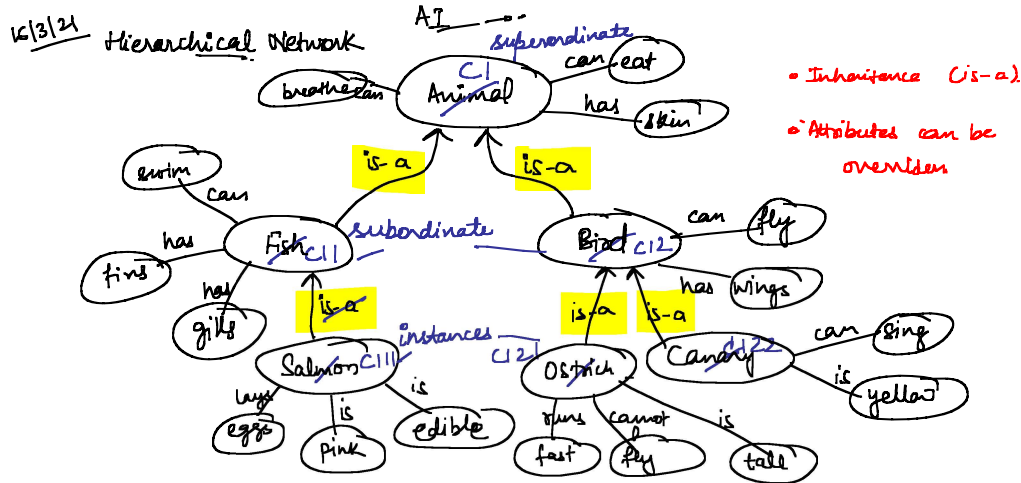 15/3/21 Hierarchical Network
AI
superordinate
C1
Animal
can
breathe
can
eat
has
skin
• Inheritance (is-a)
• Attributes can be
overriden
is-a
is-a
swim
can
has
fins
has
gills
Fish C11
subordinate
Bird C12
can
fly
has
wings
is-a
is-a
is-a
instances
Salmon C111
lays
eggs
is
pink
is
edible
C121
Ostrich
runs
fast
cannot
fly
is
tall
Canary C122
can
sing
is
yellow